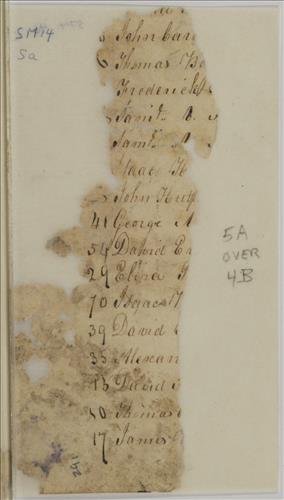 SM14
5a
John Car
6 Thomas Bo
Frederick
Saml. B.
Saml.
Isaac H
John Huf
41 George
54 David E
29 Eliza
70 Isaac
39 David
35 Alexan
13 David
50 Thomas
17 James
291
5A
OVER
4B